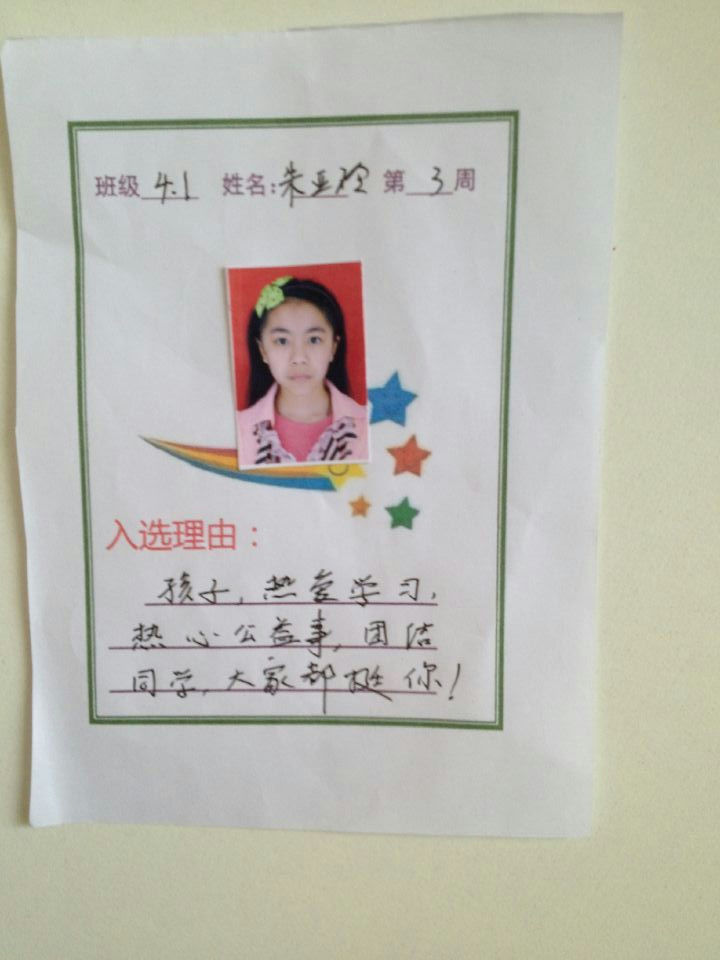 班级 4.1 姓名:朱亚玲 第 3 周
入选理由:
孩子,热爱学习,
热心公益事,团结
同学,大家都挺你!